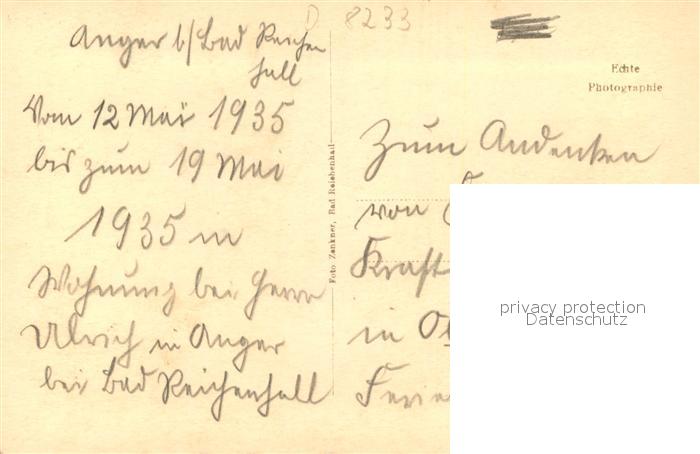 D 8233
Anger b/Bad Reichen
hall
Vom 12 Mai 1935
bis zum 19 Mai
1935 in
Wohnung bei Herrn
Ulrich in Anger
bei Bad Reichenhall
Foto Zankner, Bad Reichenhall
Echte
Photographie
Zum Andenken
von
Kraft
in
privacy protection
Datenschutz